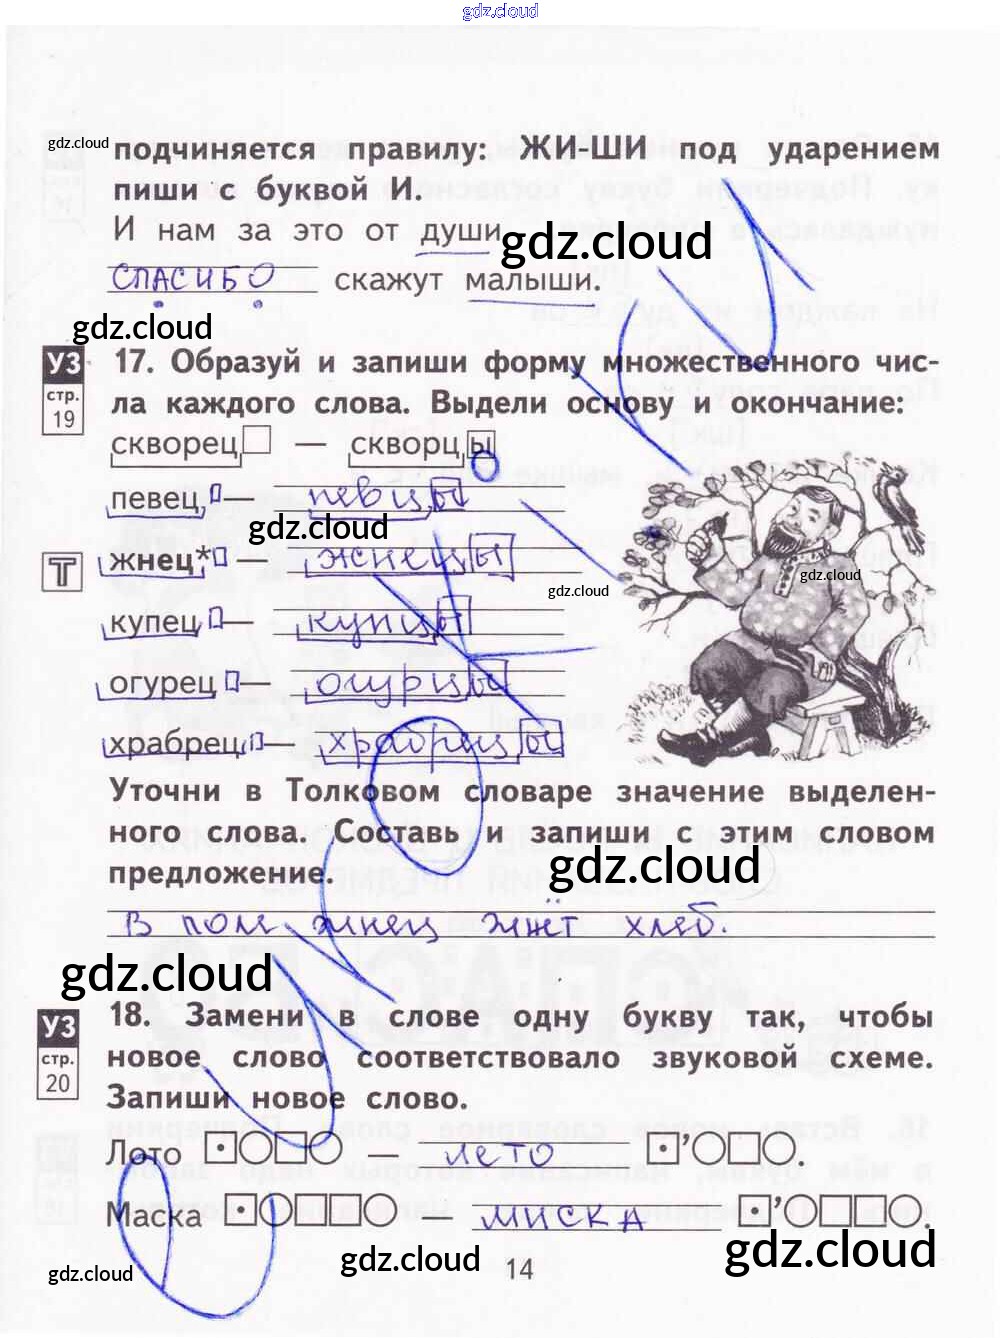 gdz.cloud
gdz.cloud
подчиняется правилу: ЖИ-ШИ под ударением
пиши с буквой И.
И нам за это от души
gdz.cloud
СПАСИБО скажут малыши.
gdz.cloud
УЗ
стр.
19
17. Образуй и запиши форму множественного чис-
ла каждого слова. Выдели основу и окончание:
скворец — скворцы
певец — певцы
gdz.cloud
Т
жнец* — жнецы
gdz.cloud
gdz.cloud
купец — купцы
огурец — огурцы
храбрец — храбрецы
Уточни в Толковом словаре значение выделен-
ного слова. Составь и запиши с этим словом
предложение.
gdz.cloud
В поле жнец жнёт хлеб.
gdz.cloud
УЗ
стр.
20
18. Замени в слове одну букву так, чтобы
новое слово соответствовало звуковой схеме.
Запиши новое слово.
Лото — ЛЕТО
Маска — МИСКА.
gdz.cloud
gdz.cloud
gdz.cloud
14